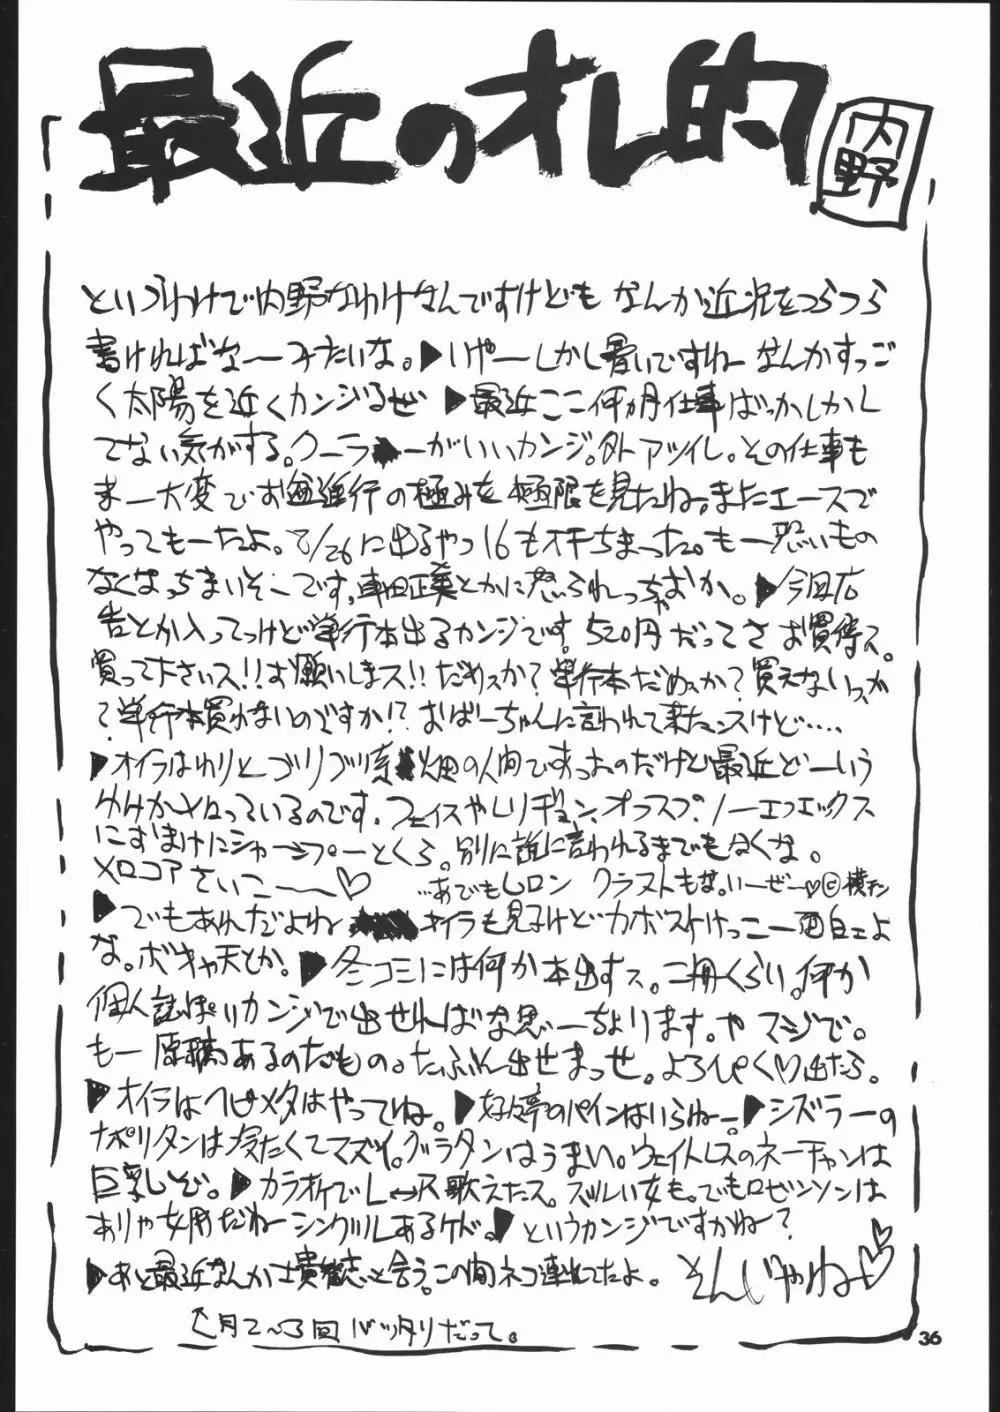 最近のオレ的
内野
というわけで内野なわけなんですけども なんか近況をつらつら
書ければなーみたいな。▶いやーしかし暑いですねーなんかすっご
く太陽を近くカンジるぜ ▶最近ここ何ヵ月仕事ばっかしかし
てない気がする。クーラーがいいカンジ。外アツイし。その仕事も
まー大変でお進行の極みを極限を見たね。またエースで
やってもーたよ。8/26に出るやつ16もオチちまった。もー恐いもの
なくなっちまいそーです。車田正美とかに怒られっちゃおか。▶今回広
告とか入ってっけど単行本出るカンジです。520円だってさ お買得ス。
買って下さいス!!お願いしまス!! だめスか?単行本だめスか?買えないっスか
?単行本買わないのですか!? おばーちゃんに言われて来たンスけど‥‥
▶オイラはわりとゴリゴリ系畑の人間ですったのだけど最近どーいう
わけかメロっているのです。フェイスやレリギョン、オフスプ、ノーエフエックス
におまけにシャーシプーとくら。別に誰に言われるまでもなくな。
メロコアさいこ――♡
…あでもLロン クラストもな。いーぜー♡©横チン
▶でもあれだよね オイラも見るけどカボスけっこー面白ェよ
な。ボキャ天とか。▶冬コミには何か本出すス。二冊くらい。何か
個人誌ぽいカンジで出せればな思ーちょります。や マジで。
もー原稿あるのだもの。たぶん出せまっせ。よろぴく♡出たら。
▶オイラはヘビメタはやってね。▶好々亭のパインはいらねー。▶シズラーの
ナポリタンは冷たくてマズイ。グラタンはうまい。ウェイトレスのネーチャンは
巨乳しで。▶カラオケでL⇔R歌えたス。ズルい女も。でもロビンソンは
ありゃ女用だねーシングルしあるケド。▶というカンジですかねー?
▶あと最近なんか士貴智志と会う。この間ネコ連れてたよ。
そんじゃねー♡
↑月2〜3回バッタリだって。
36